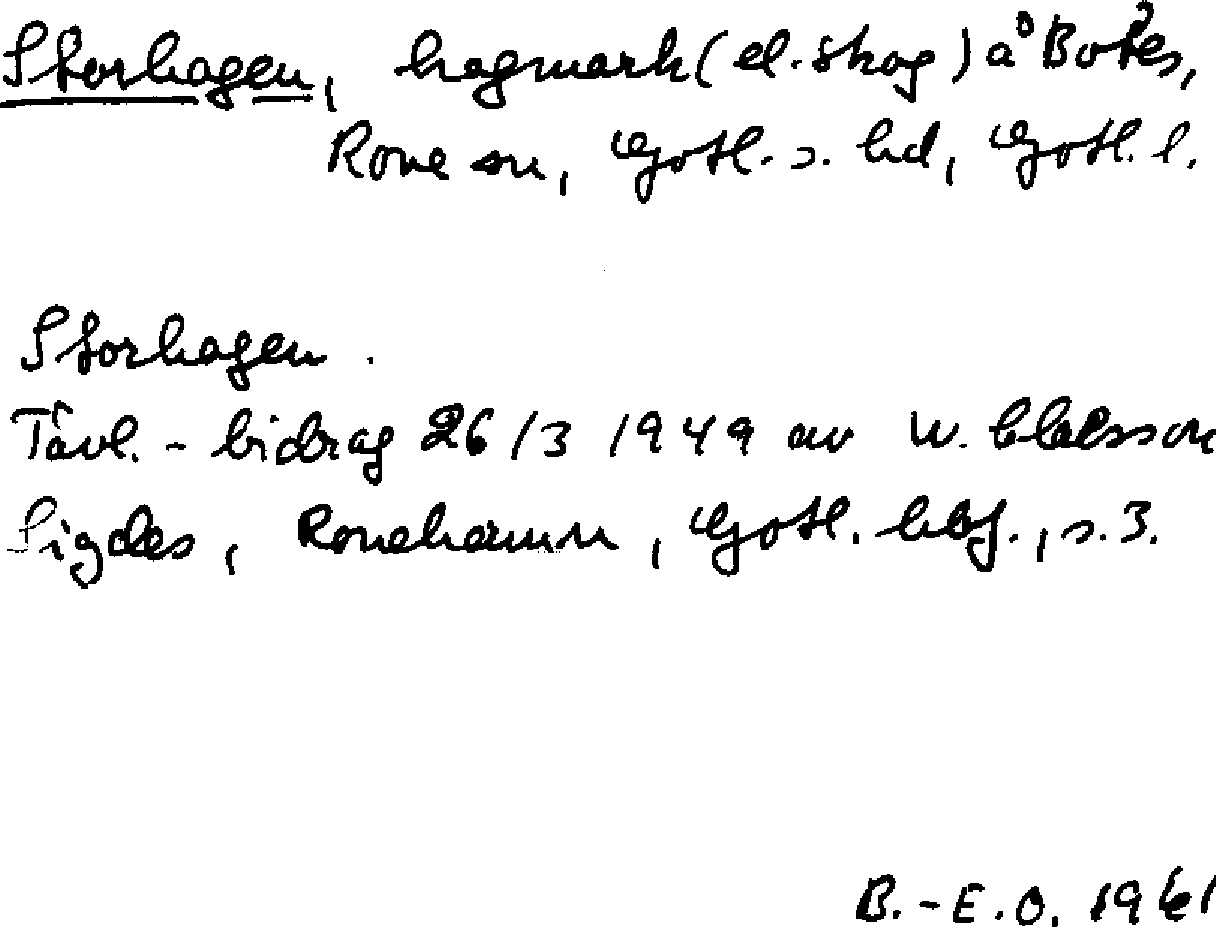 Storhagen, hagmark (el. skog) å Botes,
Rone sn, Gotl. s. hd, Gotl. l.
Storhagen.
Tävl. - bidrag 26/3 1949 av W. Claesson
Sigdes, Ronehamn, Gotl. hbf., s. 3.
B.-E.O. 1961